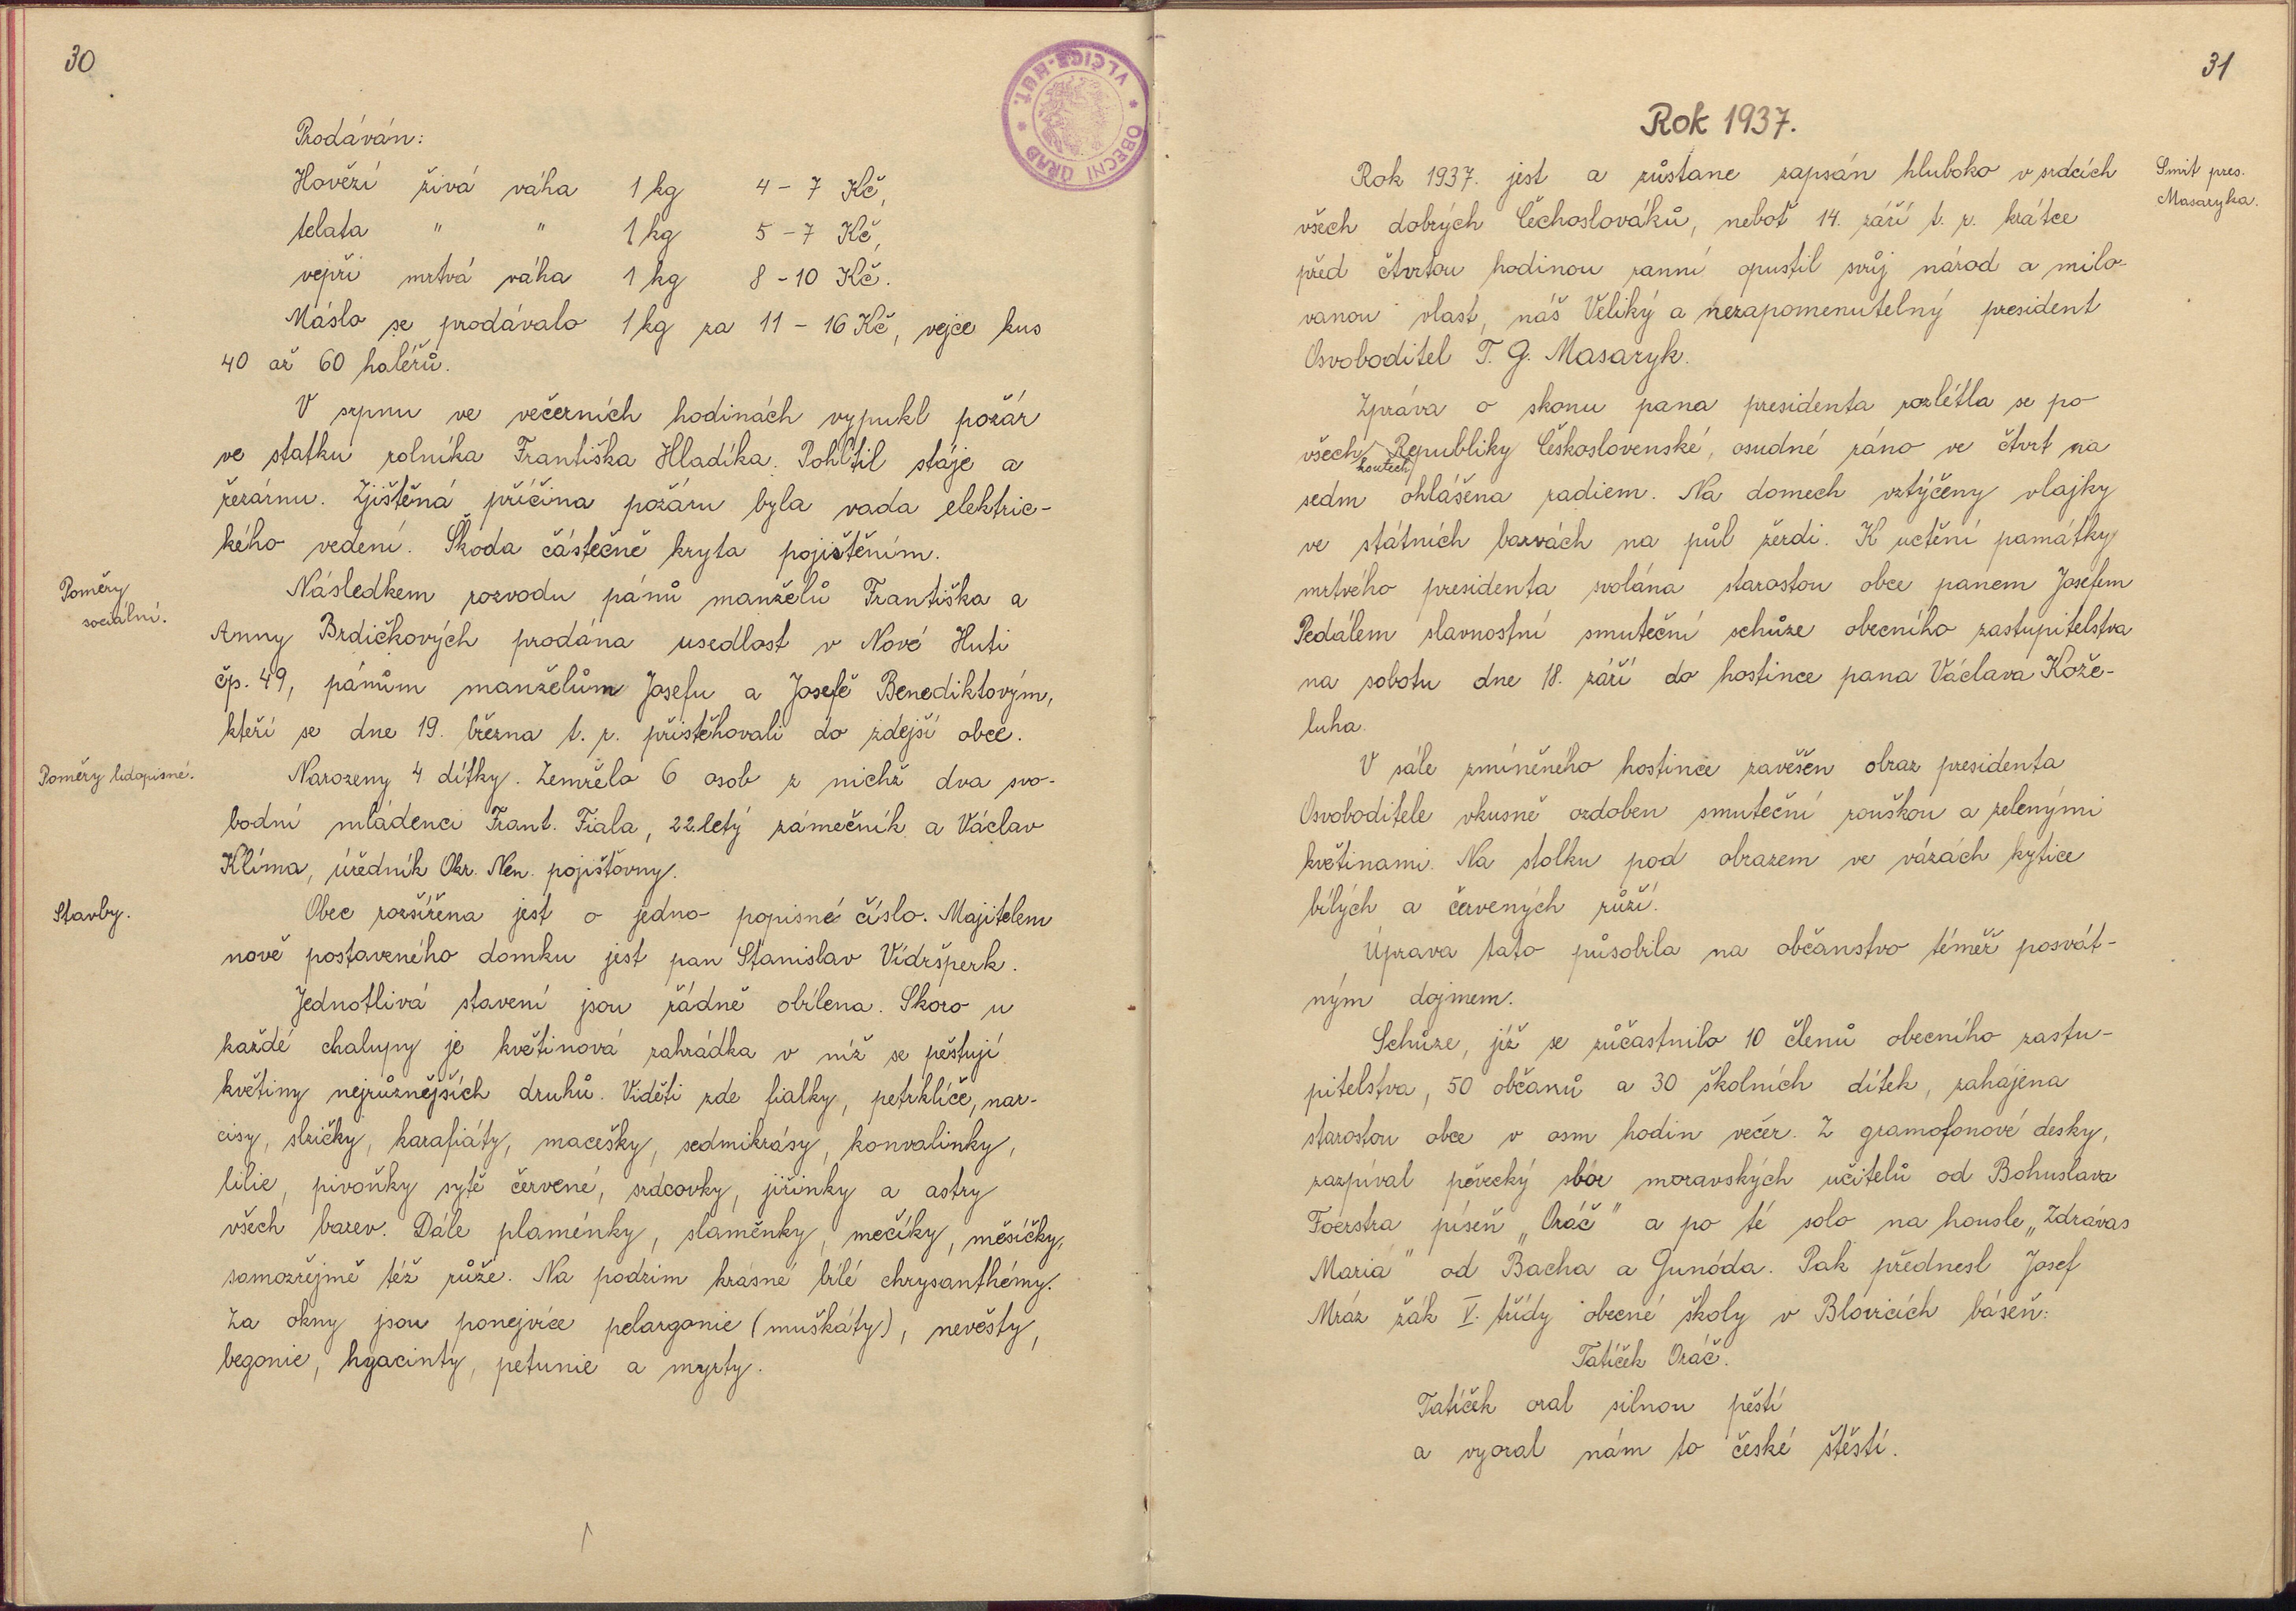 30
OBECNÍ ÚŘAD * VLČICE-HUŤ. *
Prodáván:
Hovězí živá váha 1 kg 4 - 7 Kč,
telata " " 1 kg 5 - 7 Kč,
vepři mrtvá váha 1 kg 8 - 10 Kč.
Máslo se prodávalo 1 kg za 11 - 16 Kč, vejce kus
40 až 60 haléřů.
V srpnu ve večerních hodinách vypukl požár
ve statku rolníka Františka Hladíka. Pohltil stáje a
řezárnu. Zjištěná příčina požáru byla vada elektric-
kého vedení. Škoda částečně kryta pojištěním.
Poměry
sociální.
Následkem rozvodu pánů manželů Františka a
Anny Brdičkových prodána usedlost v Nové Huti
čp. 49, pánům manželům Josefu a Josefě Benediktovým,
kteří se dne 19. března t. r. přistěhovali do zdejší obce.
Poměry lidopisné.
Narozeny 4 dítky. Zemřelo 6 osob z nichž dva svo-
bodní mládenci Frant. Fiala, 22letý zámečník a Václav
Klíma, úředník Okr. Nem. pojišťovny.
Stavby.
Obec rozšířena jest o jedno popisné číslo. Majitelem
nově postaveného domku jest pan Stanislav Vídršperk.
Jednotlivá stavení jsou řádně obílena. Skoro u
každé chalupy je květinová zahrádka v níž se pěstují
květiny nejrůznějších druhů. Viděti zde fialky, petrklíče, nar-
cisy, slzičky, karafiáty, macešky, sedmikrásy, konvalinky,
lilie, pivoňky sytě červené, srdcovky, jiřinky a astry
všech barev. Dále plaménky, slaměnky, mečíky, měsíčky,
samozřejmě též růže. Na podzim krásné bílé chrysanthémy.
Za okny jsou ponejvíce pelargonie (muškáty), nevěsty,
begonie, hyacinty, petunie a myrty.
31
Rok 1937.
Smrt pres.
Masaryka.
Rok 1937. jest a zůstane zapsán hluboko v srdcích
všech dobrých Čechoslováků, neboť 14. září t. r. krátce
před čtvrtou hodinou ranní opustil svůj národ a milo-
vanou vlast, náš Veliký a nezapomenutelný president
Osvoboditel T. G. Masaryk.
Zpráva o skonu pana presidenta rozlétla se po
všech koutech Republiky Československé, osudné ráno ve čtvrt na
sedm ohlášena radiem. Na domech vztýčeny vlajky
ve státních barvách na půl žerdi. K uctění památky
mrtvého presidenta svolána starostou obce panem Josefem
Pedálem slavnostní smuteční schůze obecního zastupitelstva
na sobotu dne 18. září do hostince pana Václava Kože-
luha.
V sále zmíněného hostince zavěšen obraz presidenta
Osvoboditele vkusně ozdoben smuteční rouškou a zelenými
květinami. Na stolku pod obrazem ve vázách kytice
bílých a červených růží.
Úprava tato působila na občanstvo téměř posvát-
ným dojmem.
Schůze, jíž se zůčastnilo 10 členů obecního zastu-
pitelstva, 50 občanů a 30 školních dítek, zahájena
starostou obce v osm hodin večer. Z gramofonové desky,
zazpíval pěvecký sbor moravských učitelů od Bohuslava
Foerstra píseň „Oráč" a po té solo na housle „Zdrávas
Maria" od Bacha a Gunóda. Pak přednesl Josef
Mráz žák V. třídy obecné školy v Blovicích báseň:
Tatíček Oráč.
Tatíček oral silnou pěstí
a vyoral nám to české štěstí.